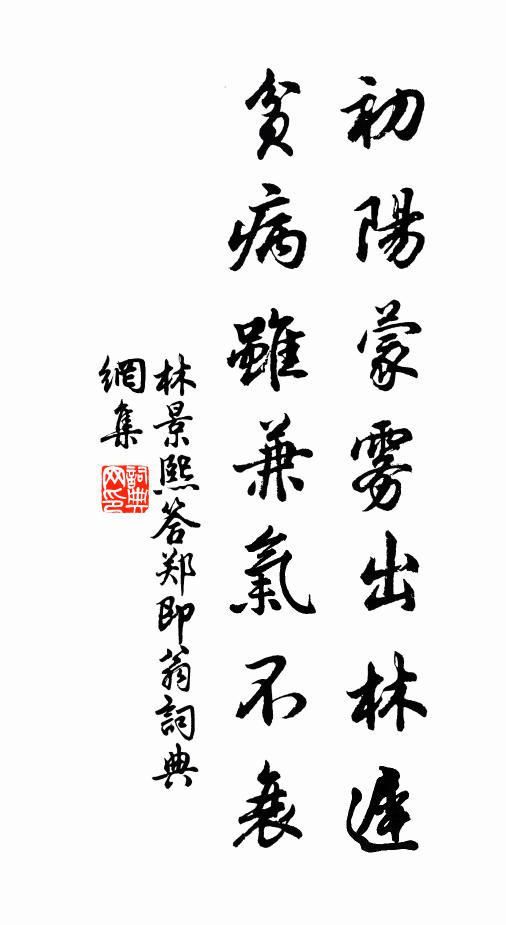 初陽蒙雾出林遲
貧病雖兼氣不衰
林景熙答郑即翁詞典
網集
詞典
网印